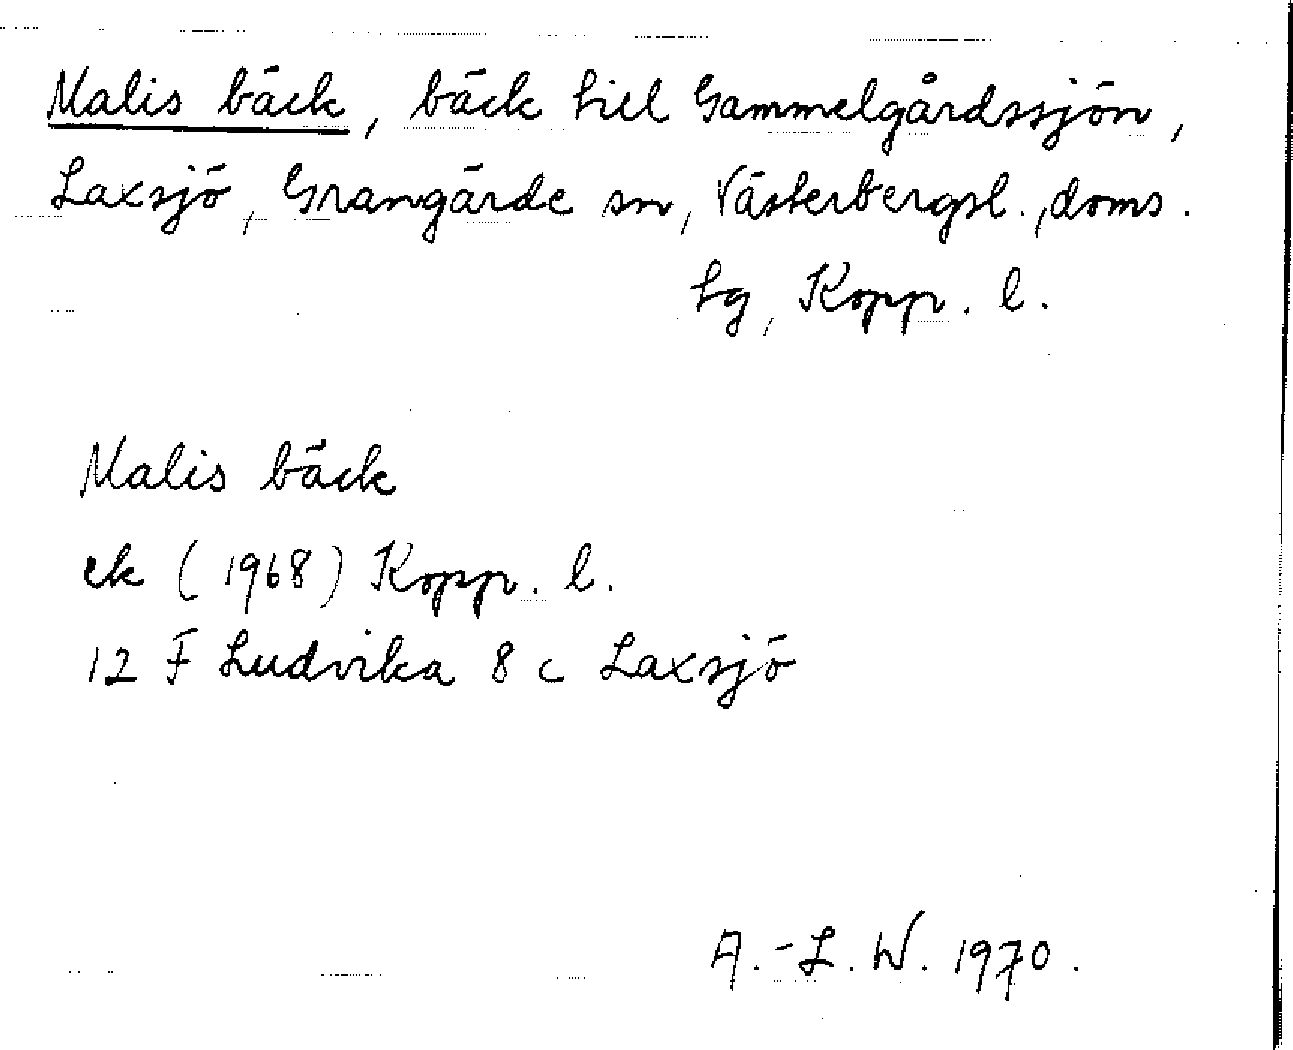 Malis bäck, bäck till Gammelgårdssjön,
Laxsjö, Grangärde sn, Västerbergsl., doms.
hg, Kopp. l.
Malis bäck
ek (1968) Kopp. l.
12 F Ludvika 8 c Laxsjö
A.-L. W. 1970.